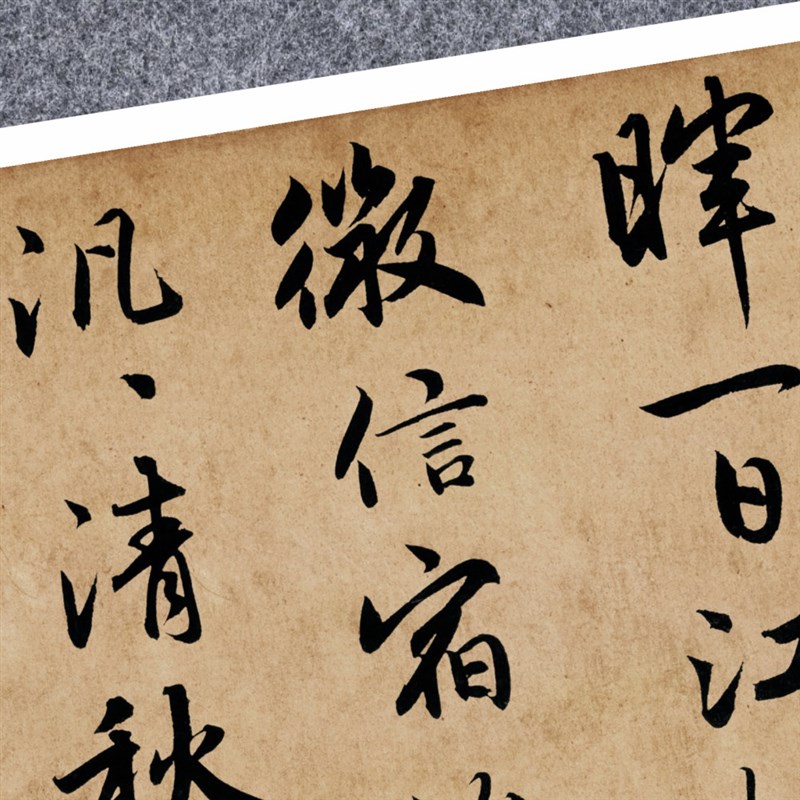 暉一日江
微信宿
汎、清秋